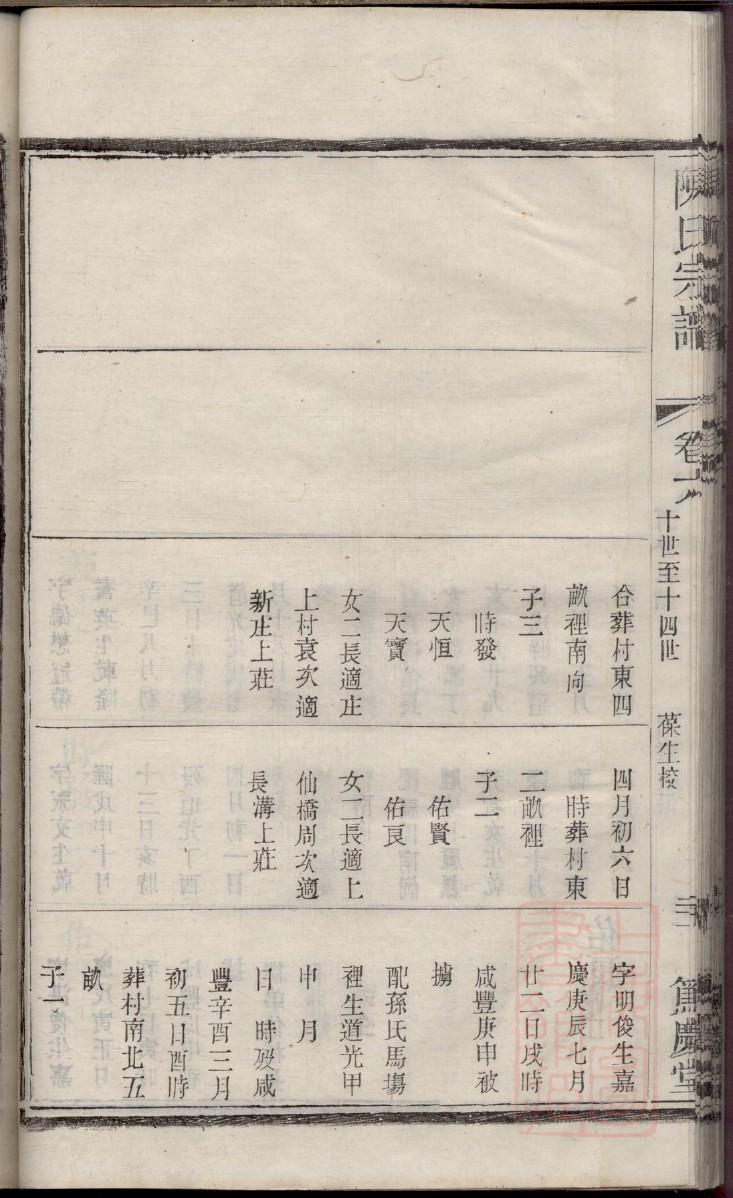 陳氏宗譜
卷六
十世至十四世
葆生校
三
篤慶堂
合葬村東四
畝裡南向
子三
時發
天恒
天寶
女二長適庄
上村袁次適
新庄上莊
四月初六日
時葬村東
二畝裡
子二
佑賢
佑良
女二長適上
仙橋周次適
長溝上莊
字明俊生嘉
慶庚辰七月
廿二日戌時
咸豐庚申被
擄
配孫氏馬塲
裡生道光甲
申 月
日 時歿咸
豐辛酉三月
初五日酉時
葬村南北五
畝
子一